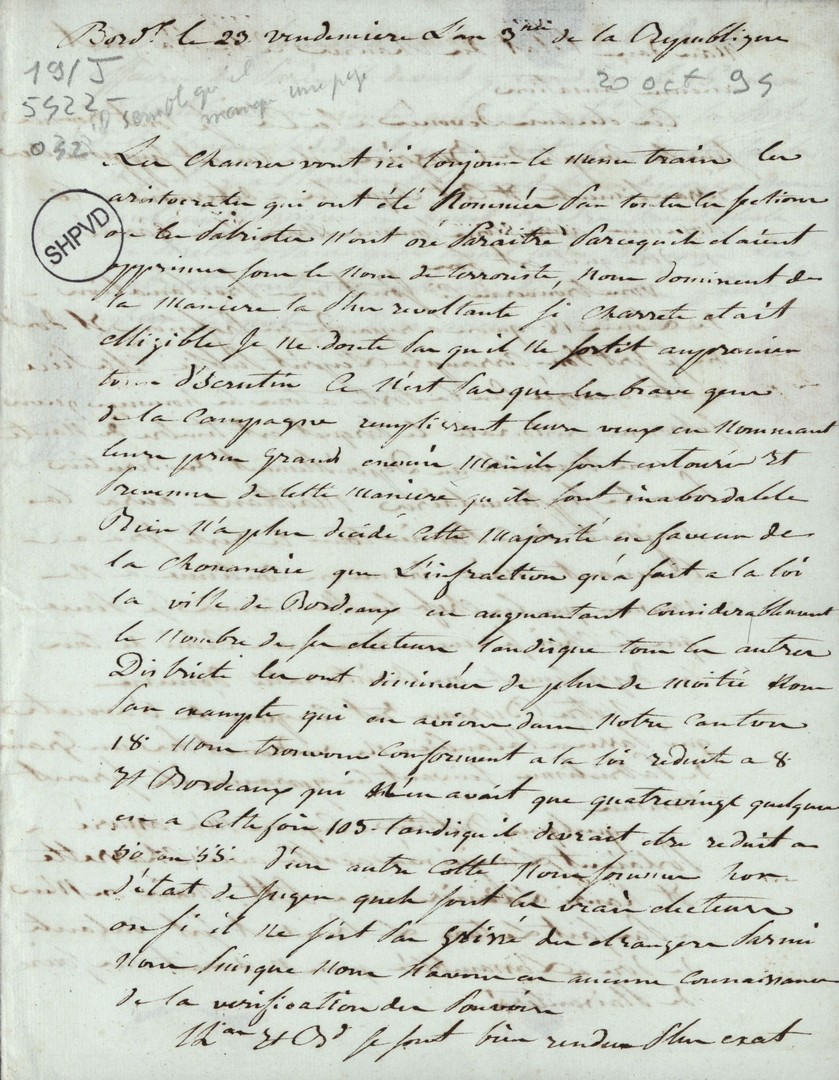 Bord.x le 23 vendemiere L'an 3me de la Republique
19/J
5422-
032
il semble qu'il
manque une page
20 oct 94
SHPVD
Les Choses vont ici toujours le meme train les
aristocrates qui ont été Nommés Par toutes les sections
ou les Patriotes N'ont osé Paraitre Parcequils etaient
opprimes sous le Nom de terroriste, Nous dominent de
la Maniere la Plus revoltante si Charrete etait
elligible Je Ne doute Pas qu'il Ne sortit aupremier
tour d'Scrutin Ce N'est Pas que les braves gens
de la Campagne remplissent leurs veux en Nommant
leurs plus Grands ennemis Mais ils sont entourés Et
Prevenus de Cette Maniere qu'ils sont inabordables
Rien N'a plus décidé Cette Majorité en faveur de
la Chouanerie que L'infraction qu'a fait a la loi
la ville de Bordeaux en augmantant Considerablement
le Nombre de ses electeurs tandisque tous les autres
Districts les ont diminués de plus de Moitié Nous
Par exemple qui en avions dans Notre Canton
18 Nous trouvons Conforment a la loi reduits a 8
Et Bordeaux qui N'en avait que quatrevingt quelques
en a Cette fois 105. tandisqu'il devrait etre reduit a
50 ou 55. D'un autre Cotté Nous sommes hors
d'état de juger quels sont les vrais electeurs
ou si il Ne s'est Pas Glissé des etrangers Parmi
Nous Puisque Nous N'avons eu aucune Connaissance
de la verification des Pouvoirs
Et se sont bien rendus Plus exat